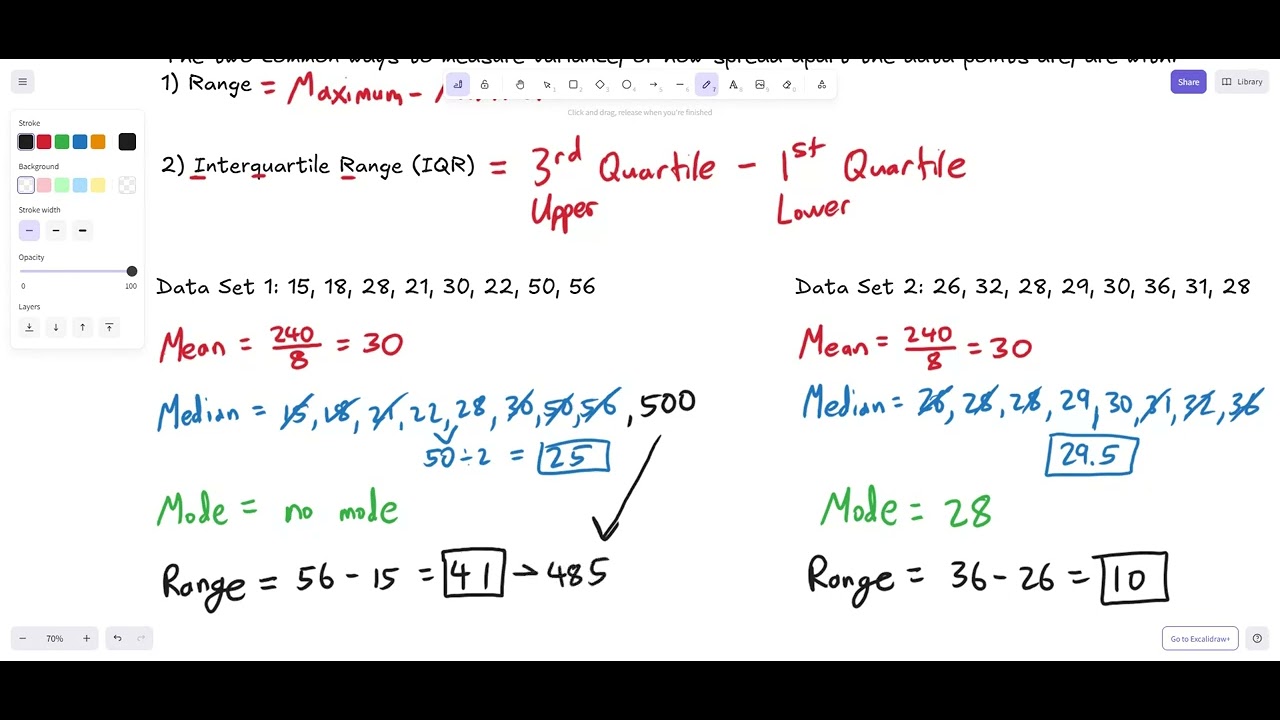 The two common ways to measure variance, or how spread apart the data points are, are with:
1) Range = Maximum -
Share
Library
Click and drag, release when you're finished
Stroke
Background
Stroke width
Opacity
0 100
Layers
2) Interquartile Range (IQR) = 3rd Quartile - 1st Quartile
Upper Lower
Data Set 1: 15, 18, 28, 21, 30, 22, 50, 56
Mean = 240/8 = 30
Median = 15, 18, 21, 22, 28, 30, 50, 56, 500
50÷2 = 25
Mode = no mode
Range = 56 - 15 = 41 → 485
Data Set 2: 26, 32, 28, 29, 30, 36, 31, 28
Mean = 240/8 = 30
Median = 26, 28, 28, 29, 30, 31, 32, 36
29.5
Mode = 28
Range = 36 - 26 = 10
70%
Go to Excalidraw+